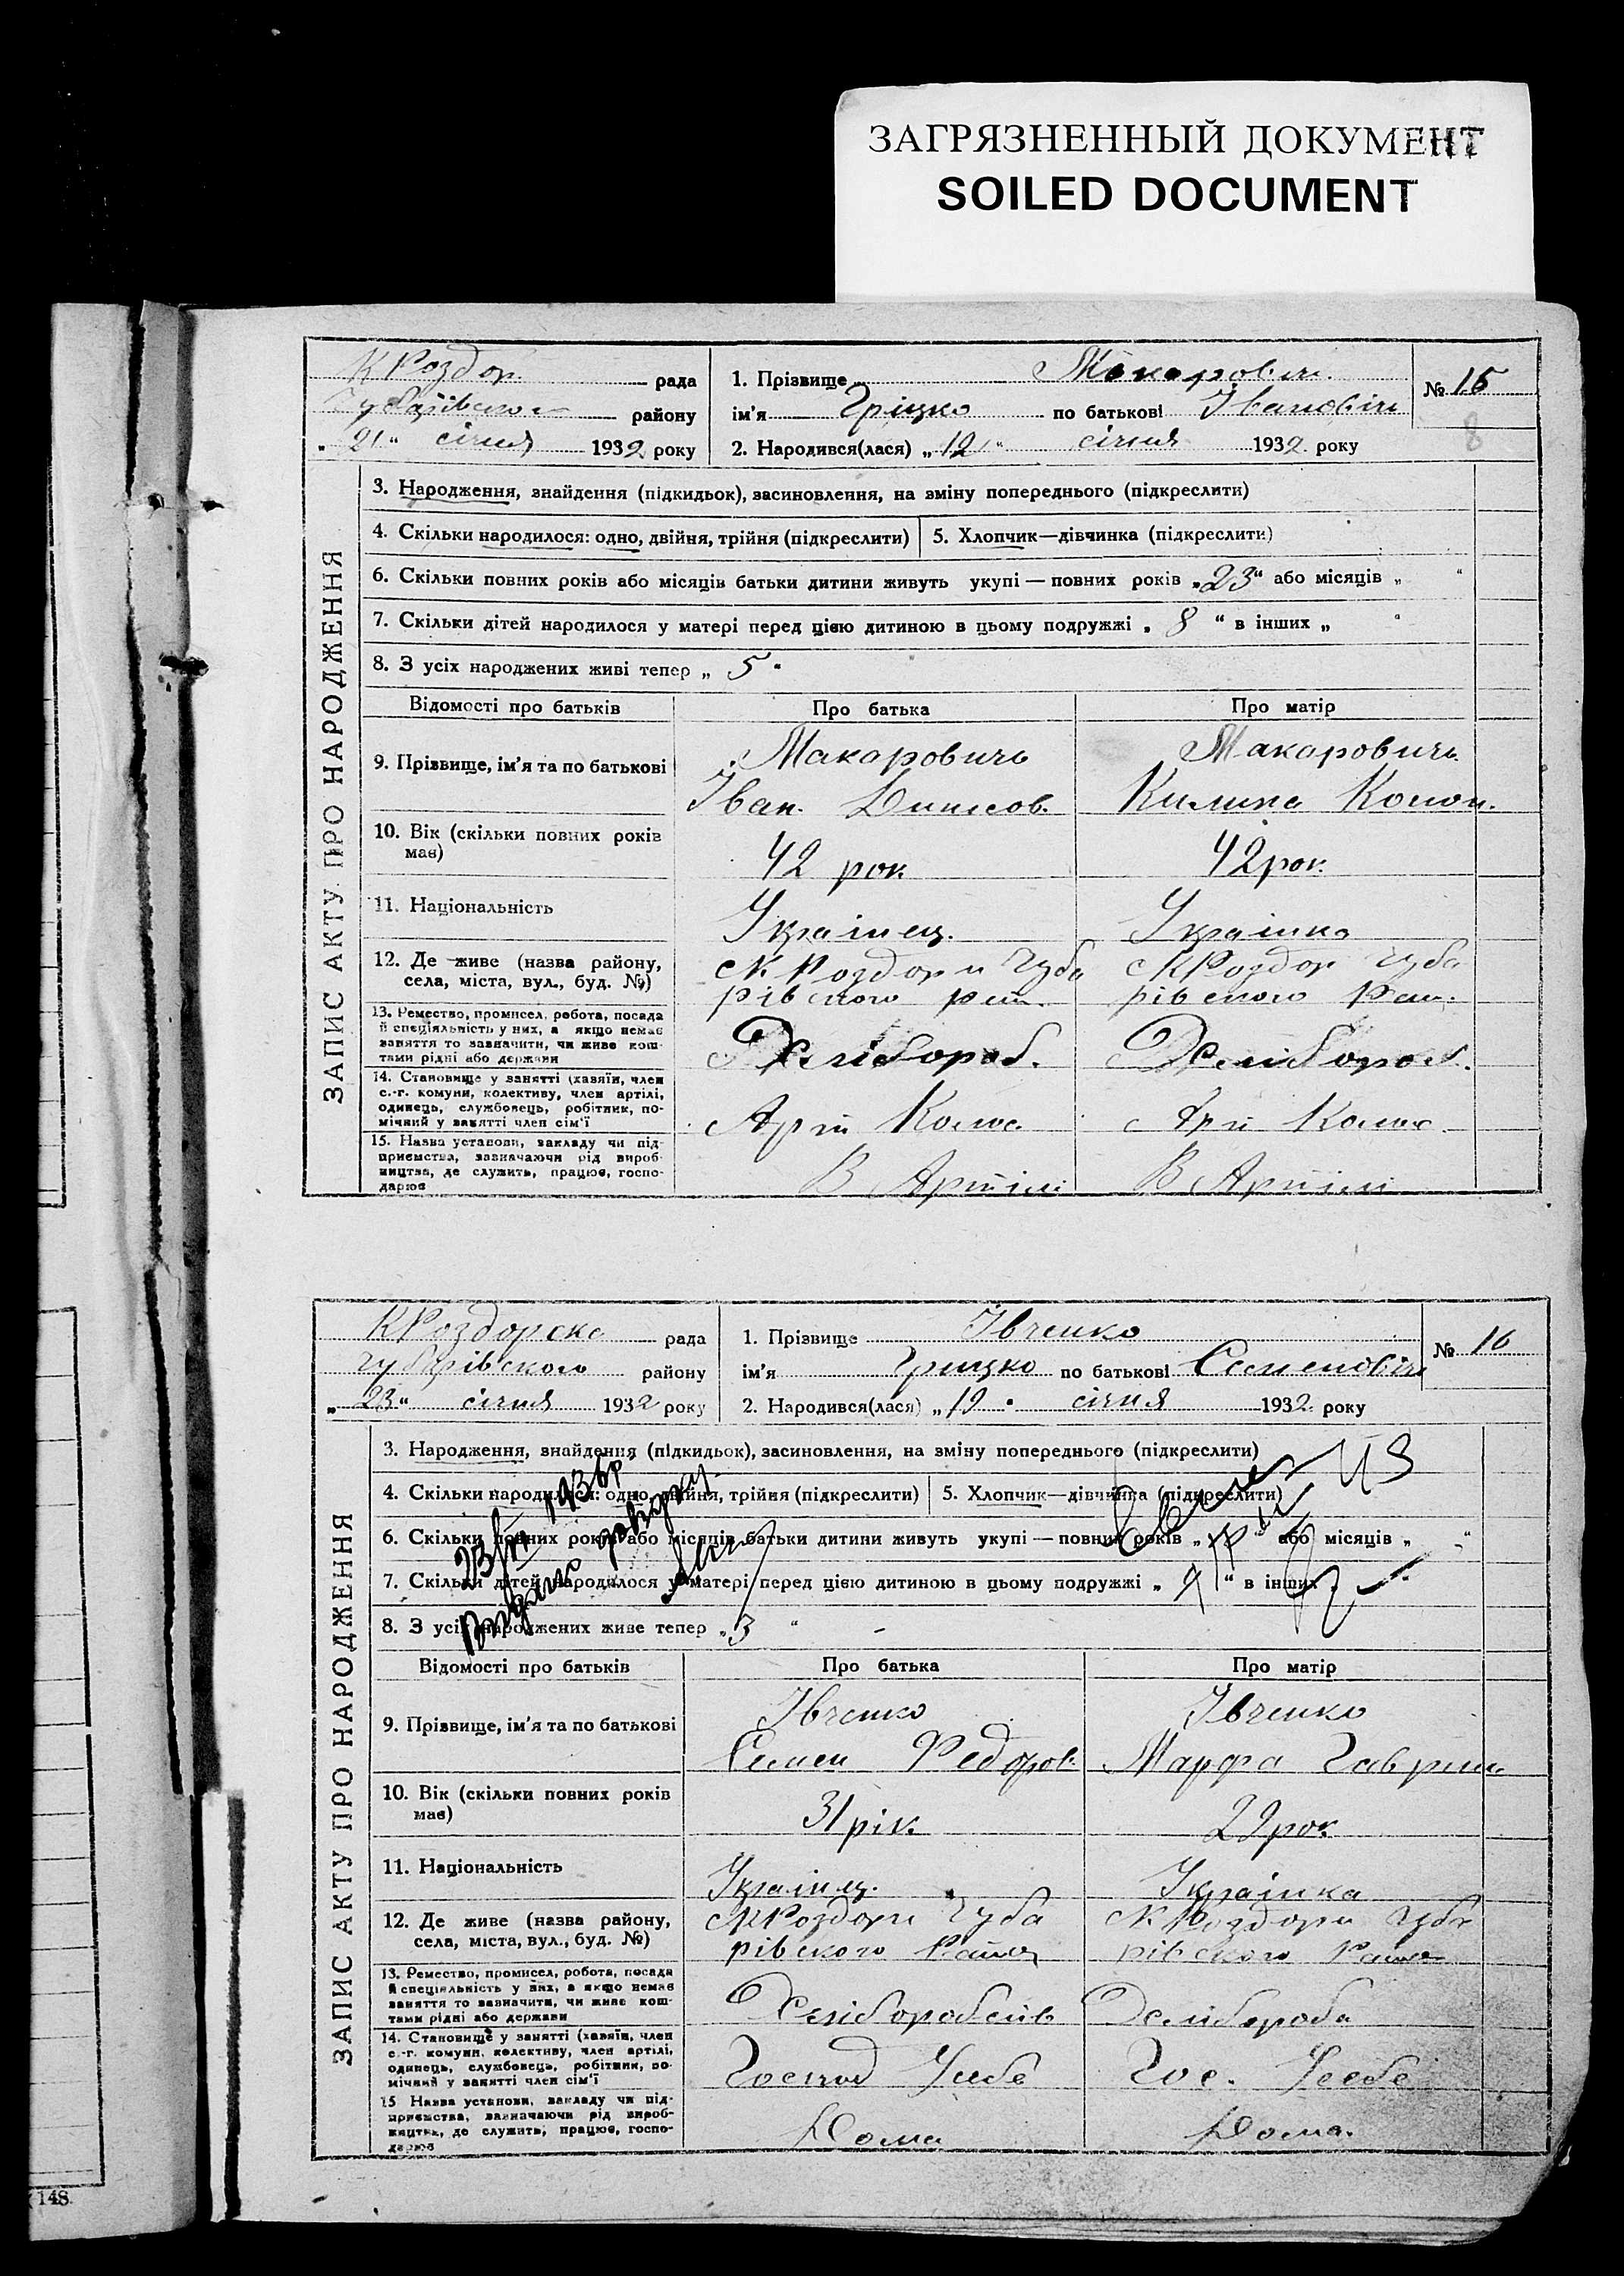 ЗАГРЯЗНЕННЫЙ ДОКУМЕНТ
SOILED DOCUMENT
К Роздор. рада
району
„21“ січня 1932 року
1. Прізвище Макарович
ім'я Гріцко по батькові Іванович
2. Народився(лася) „12“ січня 1932 року
№ 15
8
ЗАПИС АКТУ ПРО НАРОДЖЕННЯ
3. Народження, знайдення (підкидьок), засиновлення, на зміну попереднього (підкреслити)
4. Скільки народилося: одно, двійня, трійня (підкреслити)
5. Хлопчик—дівчинка (підкреслити)
6. Скільки повних років або місяців батьки дитини живуть укупі — повних років „23“ або місяців „ “
7. Скільки дітей народилося у матері перед цією дитиною в цьому подружжі „ 8 “ в інших „ “
8. З усіх народжених живі тепер „ 5 “
Відомості про батьків Про батька Про матір
9. Прізвище, ім'я та по батькові
Макаровичь Макаровичь
Іван. Килина
10. Вік (скільки повних років має)
42 рок 42 рок.
11. Національність
Українец. Українка
12. Де живе (назва району,
села, міста, вул., буд. №)
К Роздори Губа К Роздор Губа
рівского рівского
13. Ремество, промисел, робота, посада
й спеціяльність у них, а якщо немає
заняття то зазначити, чи живе кош-
тами рідні або держави
Хлібороб. Хлібороб.
14. Становище у занятті (хазяїн, член
с.-г. комуни, колективу, член артілі,
одинець, службовець, робітник, по-
мічний у занятті член сім'ї
15. Назва установи, закладу чи під-
приємства, зазначаючи рід вироб-
ництва, де служить, працює, госпо-
дарює
В Артілі В Артілі
К Роздорска рада
Губарівского району
„23“ січня 1932 року
1. Прізвище Івченко
ім'я Грицко по батькові Семенович
2. Народився(лася) „19“ січня 1932 року
№ 16
ЗАПИС АКТУ ПРО НАРОДЖЕННЯ
3. Народження, знайдення (підкидьок), засиновлення, на зміну попереднього (підкреслити)
4. Скільки народилося: одно, двійня, трійня (підкреслити)
5. Хлопчик—дівчинка (підкреслити)
6. Скільки повних років або місяців батьки дитини живуть укупі — повних років „ або місяців „ “
7. Скільки дітей народилося у матері перед цією дитиною в цьому подружжі „ “ в інших
8. З усіх народжених живе тепер „3 “
Відомості про батьків Про батька Про матір
9. Прізвище, ім'я та по батькові
Івченко Івченко
Семен Федоров. Марфа
10. Вік (скільки повних років має)
31 рік. 29 рок.
11. Національність
Українец. Українка
12. Де живе (назва району,
села, міста, вул., буд. №)
К Роздори Губа К Роздори Губа
рівского рівского
13. Ремество, промисел, робота, посада
й спеціяльність у них, а якщо немає
заняття то зазначити, чи живе кош-
тами рідні або держави
14. Становище у занятті (хазяїн, член
с.-г. комуни, колективу, член артілі,
одинець, службовець, робітник, по-
мічний у занятті член сім'ї
15 Назва установи, закладу чи під-
приємства, зазначаючи рід вироб-
ництва, де служить, працює, госпо-
дарює
Дома Дома.
148